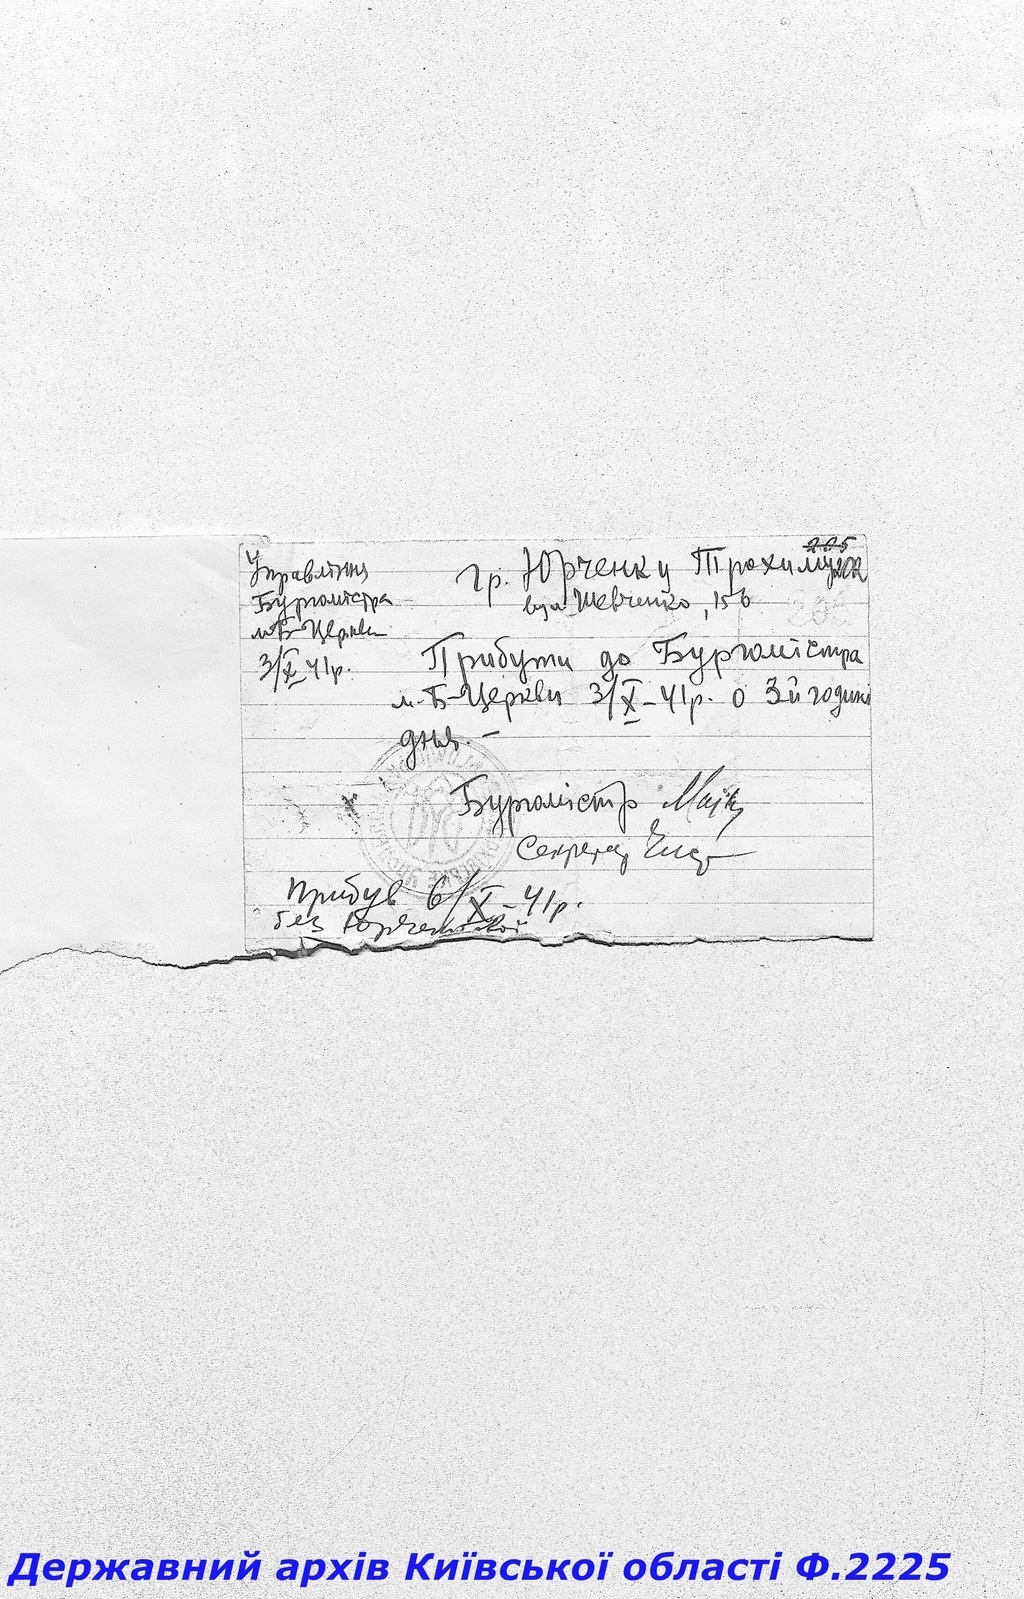 205
202
Управління
Бургомістра
м. Б-Церкви
3/X-41р.
Гр. Юрченку Трохиму
вул Шевченко, 15б
Прибути до Бургомістра
м. Б-Церкви 3/X-41р. о 3й годині
дня. –
Бургомістр
Секретар
Прибув 6/X-41р.
без
Державний архів Київської області Ф.2225